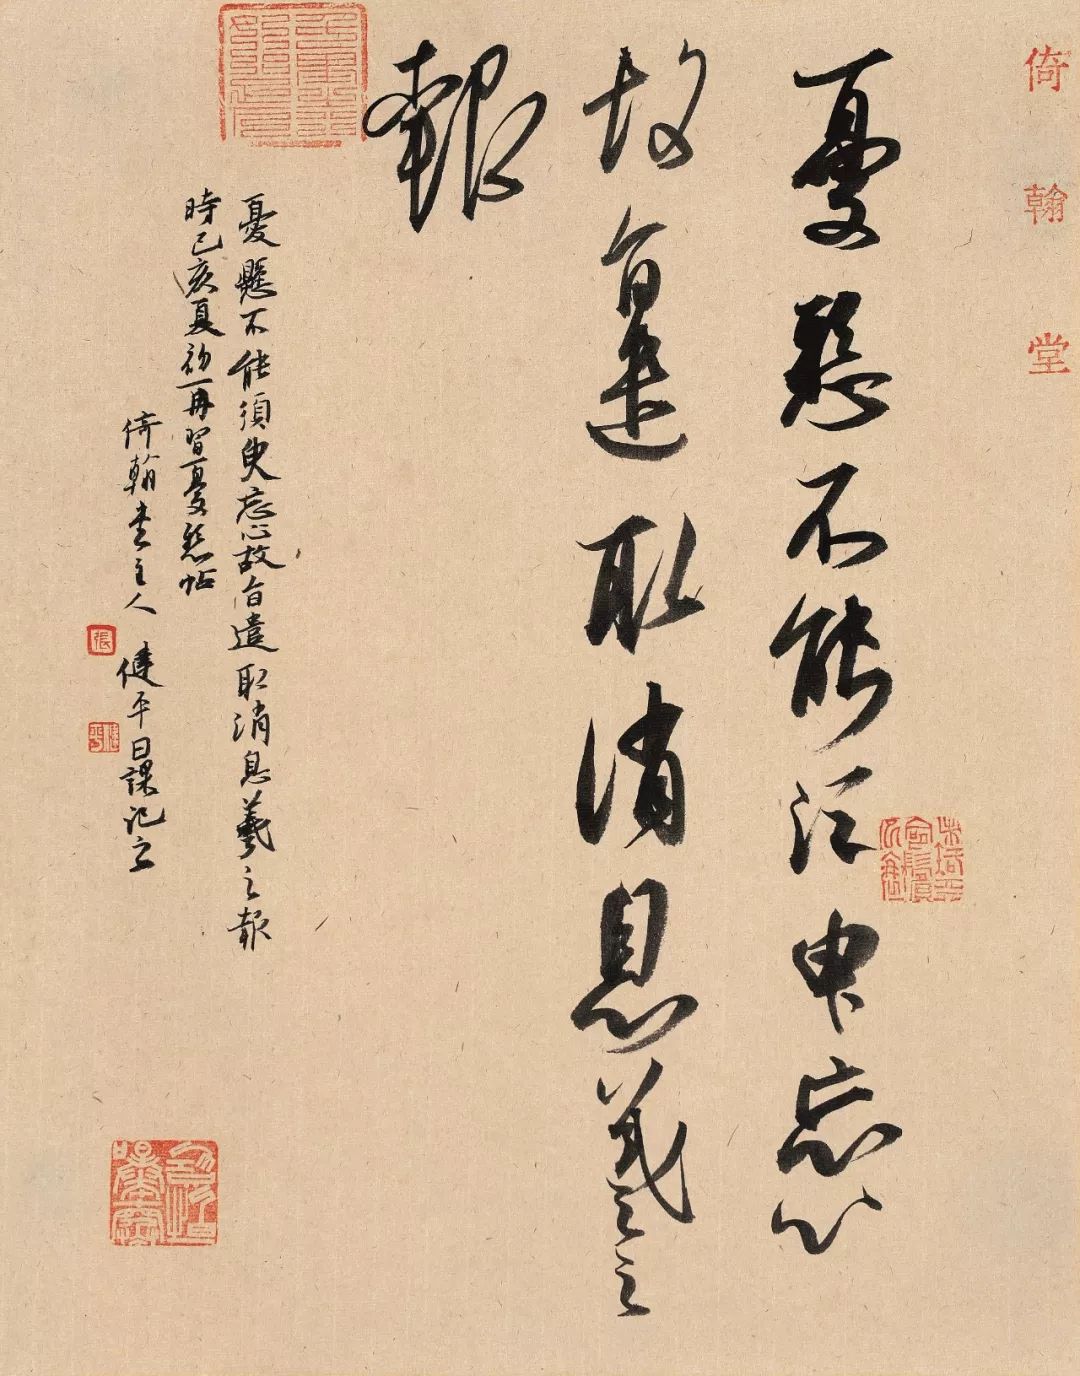 倚翰堂
憂懸不能須臾忘心
故旨遣取消息羲之
報
憂懸不能須臾忘心故旨遣取消息羲之報
時己亥夏初再習憂懸帖
倚翰堂主人 健平日課記之
張
健平